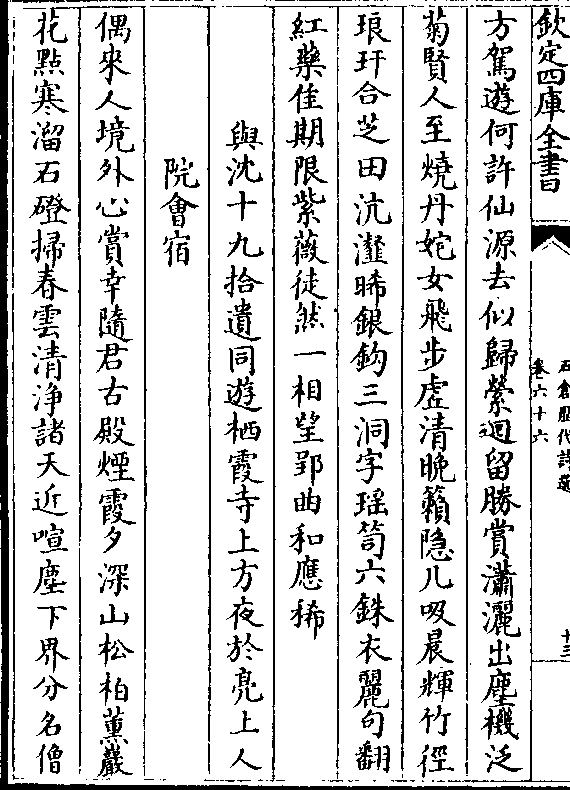 欽定四庫全書
石倉歷代詩選
卷六十六
十三
方駕遊何許仙源去似歸縈迴留勝賞瀟灑出塵機泛
菊賢人至燒丹姹女飛步虛清晚籟隐几吸晨輝竹徑
琅玕合芝田沆瀣晞銀鈎三洞字瑶笥六銖衣麗句翻
紅藥佳期限紫薇徒然一相望郢曲和應稀
與沈十九拾遺同遊栖霞寺上方夜於亮上人
院會宿
偶來人境外心賞幸隨君古殿煙霞夕深山松柏薫巖
花點寒溜石磴掃春雲清浄諸天近喧塵下界分名僧